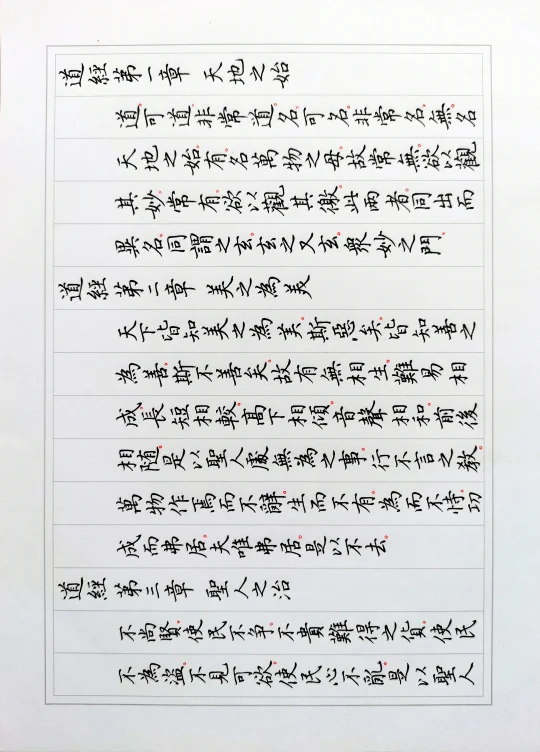 道經第一章 天地之始
道可道非常道名可名非常名無名
天地之始有名萬物之母故常無欲以觀
其妙常有欲以觀其徼此兩者同出而
異名同謂之玄玄之又玄眾妙之門
道經第二章 美之為美
天下皆知美之為美斯惡矣皆知善之
為善斯不善矣故有無相生難易相
成長短相較高下相傾音聲相和前後
相隨是以聖人處無為之事行不言之教
萬物作焉而不辭生而不有為而不恃功
成而弗居夫唯弗居是以不去
道經第三章 聖人之治
不尚賢使民不爭不貴難得之貨使民
不為盜不見可欲使民心不亂是以聖人